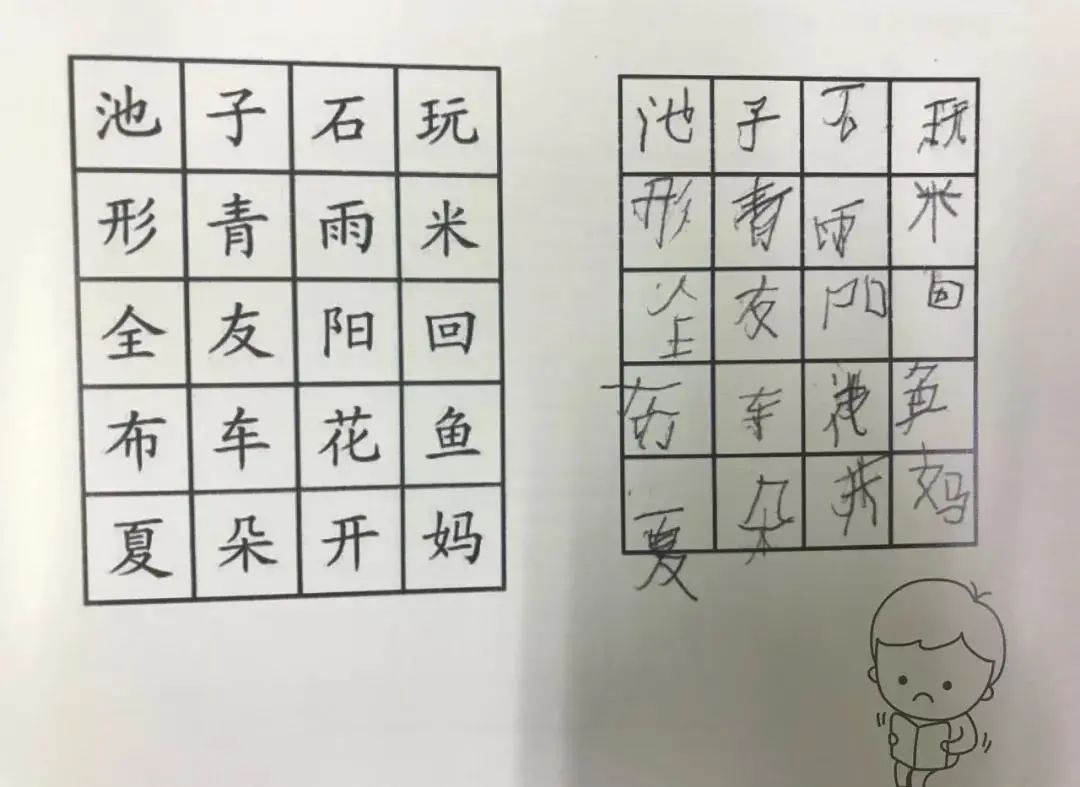 池 子 石 玩
形 青 雨 米
全 友 阳 回
布 车 花 鱼
夏 朵 开 妈
池 子 石 玩
形 青 雨 米
友 阳 回
车 鱼
夏 朵 妈